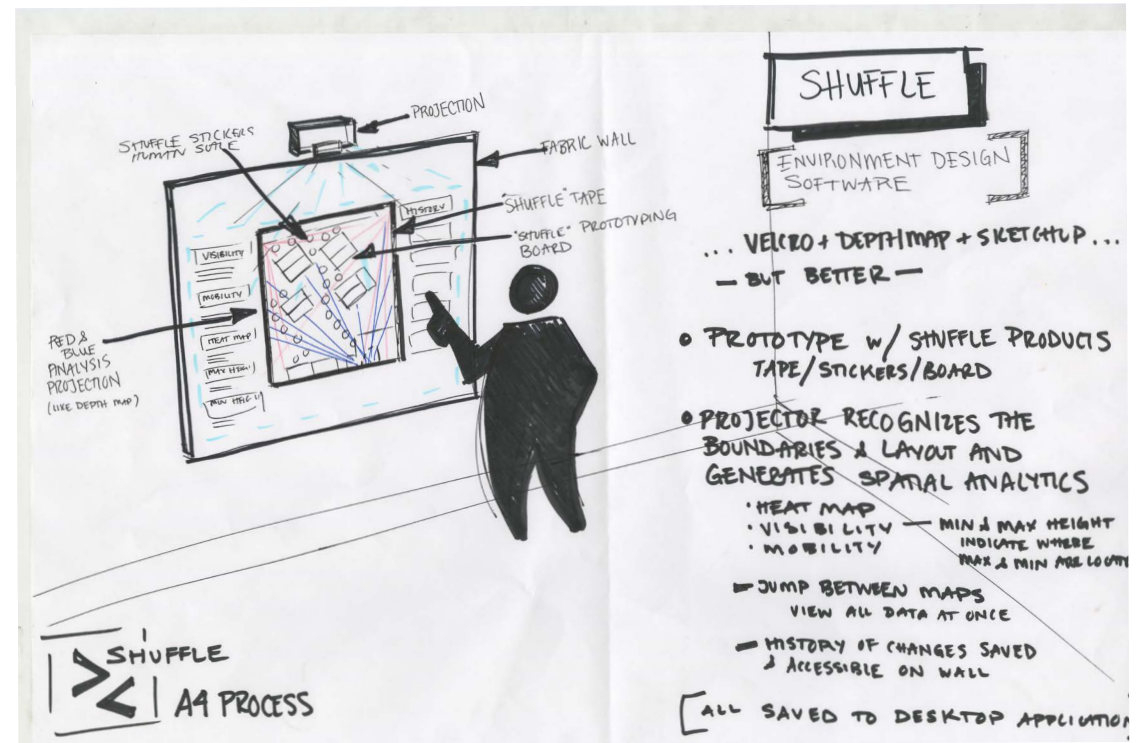 PROJECTION
SHUFFLE STICKERS
HUMAN SCALE
FABRIC WALL
"SHUFFLE" TAPE
"SHUFFLE" PROTOTYPING
BOARD
HISTORY
VISIBILITY
MOBILITY
HEAT MAP
MAX HEIG
MIN HEIG
RED &
BLUE
ANALYSIS
PROJECTION
(LIKE DEPTH MAP)
SHUFFLE
A4 PROCESS
SHUFFLE
ENVIRONMENT DESIGN
SOFTWARE
... VELCRO + DEPTHMAP + SKETCHUP ...
— BUT BETTER —
• PROTOTYPE W/ SHUFFLE PRODUCTS
TAPE/STICKERS/BOARD
• PROJECTOR RECOGNIZES THE
BOUNDARIES & LAYOUT AND
GENERATES SPATIAL ANALYTICS
· HEAT MAP
· VISIBILITY — MIN & MAX HEIGHT
INDICATE WHERE
MAX & MIN ARE LOCATE
· MOBILITY
— JUMP BETWEEN MAPS
VIEW ALL DATA AT ONCE
— HISTORY OF CHANGES SAVED
& ACCESSIBLE ON WALL
[ALL SAVED TO DESKTOP APPLICATION